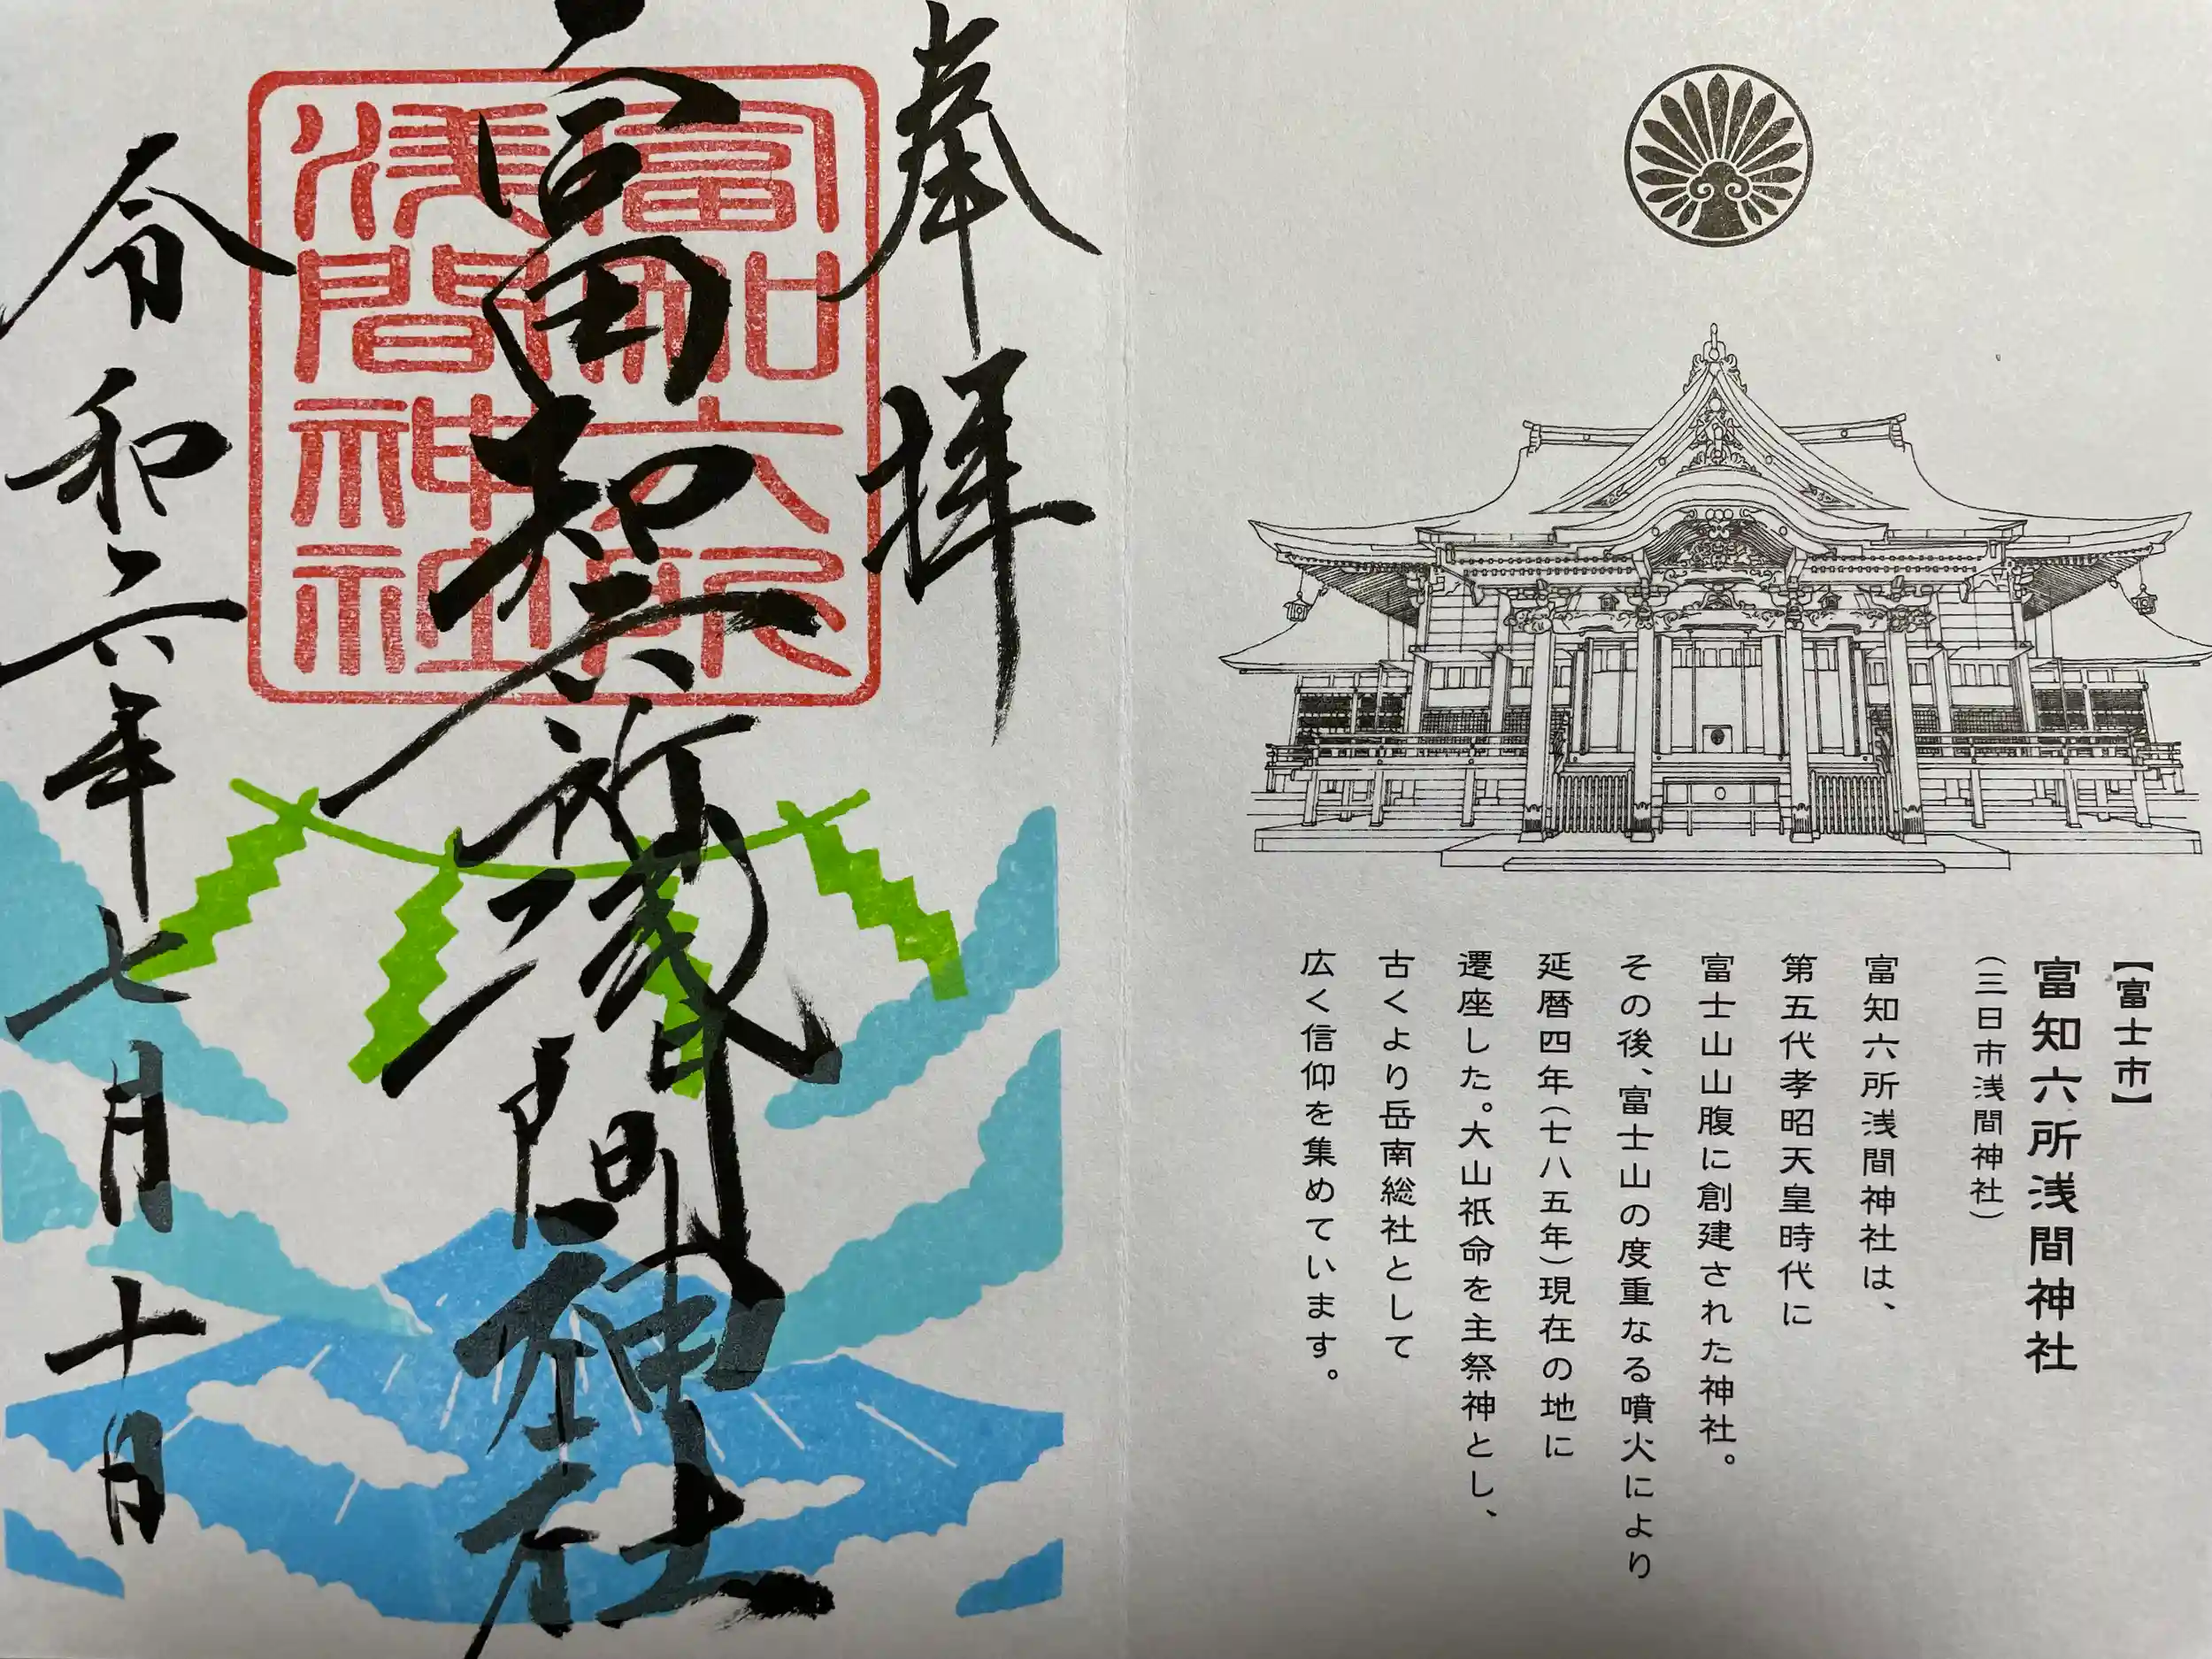 【富士市】
富知六所浅間神社
（三日市浅間神社）
富知六所浅間神社は、
第五代孝昭天皇時代に
富士山山腹に創建された神社。
その後、富士山の度重なる噴火により
延暦四年（七八五年）現在の地に
遷座した。大山祇命を主祭神とし、
古くより岳南総社として
広く信仰を集めています。
奉拝
富知六所浅間神社
令和六年七月十日